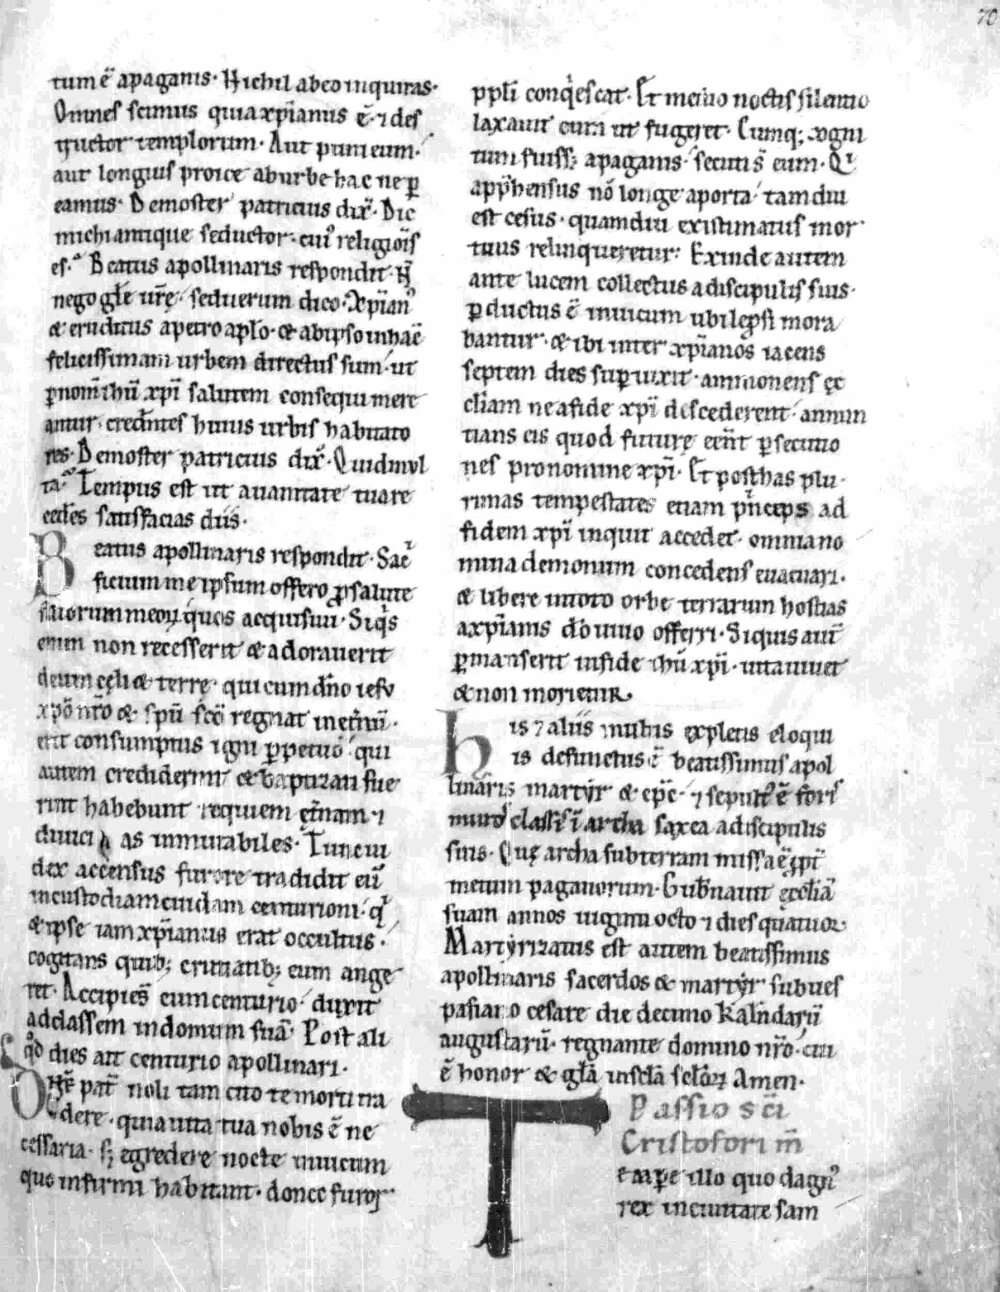 70
tum ē apaganis. Nichil abeo inquiras.
Omnes scimus quia xp̄ianus ē. ⁊ des
tructor templorum. Aut puni eum.
aut longius proice aburbe hac ne ꝑ
eamus. Demoster patricius dix̄. Dic
michi antique seductor. cuiꝰ religiōis
es. Beatus apollinaris respondit. N̄
nego gl̄e ur̄ę. sed uerum dico. Xp̄ianꝰ
& eruditus apetro apl̄o. & abipso inhāc
felicissimam urbem directus sum. ut
ꝑ nom̄ ihū xp̄i salutem consequi mere
antur. credentes huius urbis habitato
res. Demoster patricius dix̄. Quid mul
ta. Tempus est ut auanitate tua re
cedēs satisfacias diis.
Beatus apollinaris respondit. Sacͥ
ficium me ipsum offero ꝓ salute
filiorum meoꝝ quos acquisiui. Siqͥs
enim non recesserit & adorauerit
deum cęli & terrę. qui cum dn̄o iesu
xp̄o nr̄o & sp̄u sc̄o regnat inet̄nū.
erit consumptus igni ꝑpetuo. qui
autem crediderint & baptizati fue
rint habebunt requiem et̄nam ⁊
diuicias inmutabiles. Tunc iu
dex accensus furore tradidit eū
incustodiam cuidam centurioni. qͥ
& ipse iam xp̄ianus erat occultus.
cogitans quibꝫ cruciatibꝫ eum ange
ret. Accipiēs eum centurio. duxit
adclassem in domum suā. Post ali
qͦd dies ait centurio apollinari.
Dn̄e pat̄ noli tam cito te morti tra
dere. quia uita tua nobis ē ne
cessaria. sꝫ egredere nocte in uicum
quo infirmi habitant. donec furor
ppl̄i conqͥescat. Et medio noctis silentio
laxauit eum ut fugeret. Cumqꝫ cogni
tum fuissꝫ apaganis. secuti s̄ eum. Qͥ
app̄hensus nō longe aporta. tamdiu
est cesus. quamdiu existimatus mor
tuus relinqueretur. Exinde autem
ante lucem collectus adiscipulis suis.
ꝑductus ē in uicum ubi lep̄si mora
bantur. & ibi inter xp̄ianos iacens
septem dies suꝑuixit. ammonens ęc
cl̄iam ne afide xp̄i descederent. annun
tians eis quod futurę eēnt ꝑsecutio
nes pro nomine xp̄i. Et post has plu
rimas tempestates etiam pͥnceps ad
fidem xp̄i inquit accedet. omnia no
mina demonum concedens euacuari.
& libere intoto orbe terrarum hostias
axp̄ianis dō uiuo offerri. Siquis aut̄
ꝑmanserit infide ihū xp̄i. uita uiuet
& non morietur.
His ⁊ aliis multis expletis eloqui
is defunctus ē beatissimus apol
linaris martyr & ep̄c. ⁊ sepult̄ ē foris
muros classis ī archa saxea adiscipulis
suis. Quę archa subterram missa ē ꝓpt̄
metum paganorum. Gub̄nauit ęccl̄iā
suam annos uiginti octo ⁊ dies quatuor.
Martyrizatus est autem beatissimus
apollinaris sacerdos & martyr sub ues
pasiano cesare die decimo kalendarū
augustarū. regnante domino nr̄o. cui
ē honor & gl̄a insc̄la sc̄loꝝ Amen.
Passio sc̄i
Cristofori m̄
Tempore illo quo dagnꝰ
rex inciuitate sam